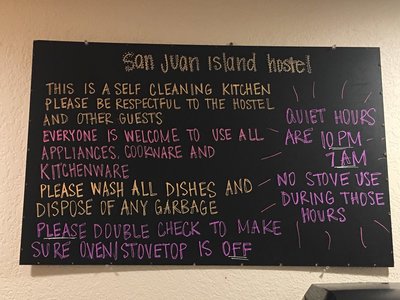 San Juan island hostel
THIS IS A SELF CLEANING KITCHEN
PLEASE BE RESPECTFUL TO THE HOSTEL
AND OTHER GUESTS
EVERYONE IS WELCOME TO USE ALL
APPLIANCES, COOKWARE AND
KITCHENWARE
PLEASE WASH ALL DISHES AND
DISPOSE OF ANY GARBAGE
PLEASE DOUBLE CHECK TO MAKE
SURE OVEN|STOVETOP IS OFF
QUIET HOURS
ARE 10 PM -
7 AM
NO STOVE USE
DURING THOSE
HOURS